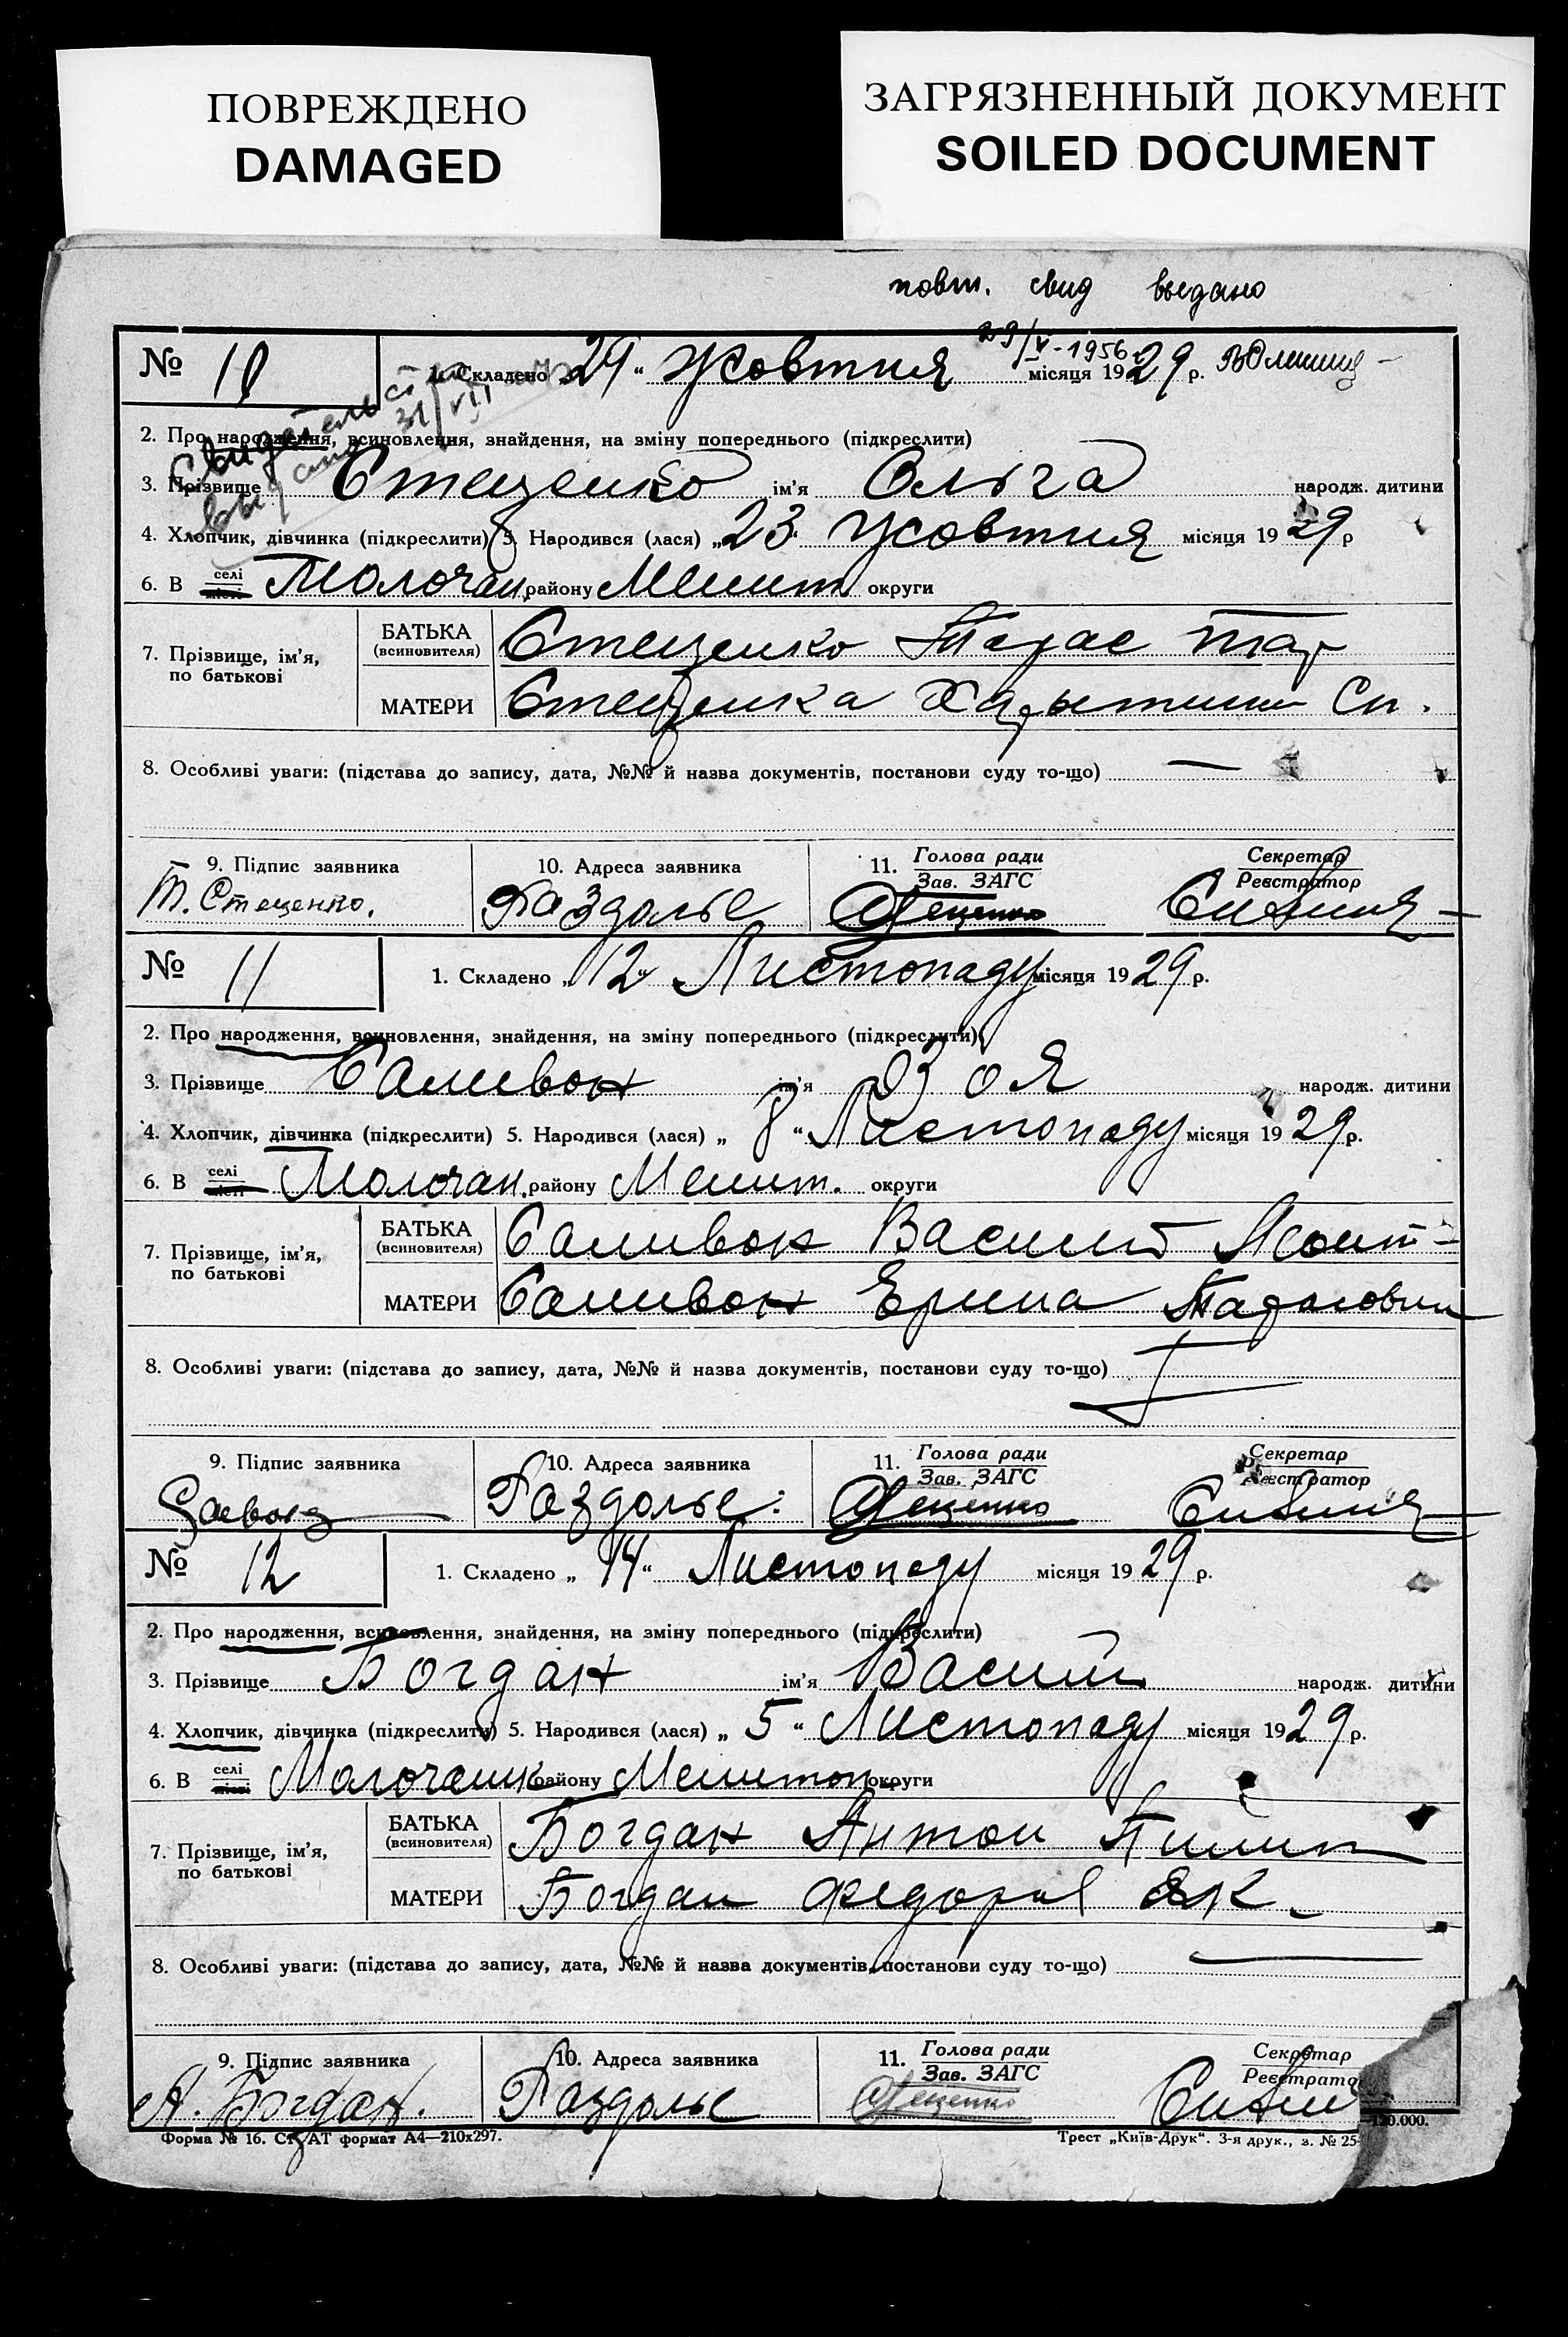 ПОВРЕЖДЕНО
DAMAGED
ЗАГРЯЗНЕННЫЙ ДОКУМЕНТ
SOILED DOCUMENT
повт. свид выдано
29/V-1956
№ 10
1. Складено „29“ Жовтня місяця 1929 р.
Свидетельство
выдано 31/VII
2. Про народження, всиновлення, знайдення, на зміну попереднього (підкреслити)
3. Прізвище Стеценко ім'я Ольга народж. дитини
4. Хлопчик, дівчинка (підкреслити) 5. Народився (лася) „23“ Жовтня місяця 1929 р
6. В селі місті Молочан. району Мелит. округи
7. Прізвище, ім'я, по батькові
БАТЬКА (всиновителя) Стеценко Тарас Тар
МАТЕРИ Стеценка Сп.
8. Особливі уваги: (підстава до запису, дата, №№ й назва документів, постанови суду то-що) —
9. Підпис заявника
10. Адреса заявника
11. Голова ради Зав. ЗАГС
Секретар Реєстратор
Т. Стеценко.
Раздолье
№ 11
1. Складено „12“ Листопаду місяця 1929 р.
2. Про народження, всиновлення, знайдення, на зміну попереднього (підкреслити)
3. Прізвище Саливон ім'я Зоя народж. дитини
4. Хлопчик, дівчинка (підкреслити) 5. Народився (лася) „8“ Листопаду місяця 1929 р.
6. В селі місті Молочан. району Мелит. округи
7. Прізвище, ім'я, по батькові
БАТЬКА (всиновителя) Саливон Василь
МАТЕРИ Саливон Ерина Тарасовна
8. Особливі уваги: (підстава до запису, дата, №№ й назва документів, постанови суду то-що)
9. Підпис заявника
10. Адреса заявника
11. Голова ради Зав. ЗАГС
Секретар Реєстратор
Раздолье
№ 12
1. Складено „14“ Листопаду місяця 1929 р.
2. Про народження, всиновлення, знайдення, на зміну попереднього (підкреслити)
3. Прізвище Богдан ім'я Василь народж. дитини
4. Хлопчик, дівчинка (підкреслити) 5. Народився (лася) „5“ Листопаду місяця 1929 р.
6. В селі місті Молочанск району Мелитоп. округи
7. Прізвище, ім'я, по батькові
БАТЬКА (всиновителя) Богдан Антон Пилип
МАТЕРИ Богдан Федора Як.
8. Особливі уваги: (підстава до запису, дата, №№ й назва документів, постанови суду то-що) —
9. Підпис заявника
10. Адреса заявника
11. Голова ради Зав. ЗАГС
Секретар Реєстратор
А. Богдан.
Раздолье
Форма № 16. СтАТ формат А4—210х297.
Трест „Київ-Друк“. 3-я друк., з. № 25
120.000.